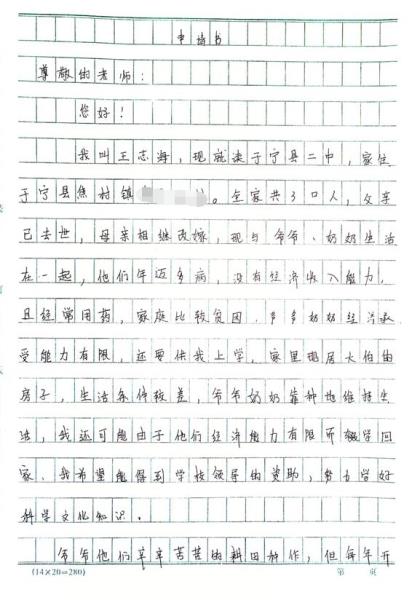 申请书
尊敬的老师：
您好！
我叫王志海，现就读于宁县二中，家住
于宁县焦村镇。全家共3口人，父亲
已去世，母亲相继改嫁，现与爷爷、奶奶生活
在一起，他们年迈多病，没有经济收入能力，
且经常用药，家庭比较贫困，爷爷奶奶经济承
受能力有限，还要供我上学，家里现居大伯的
房子，生活条件较差，爷爷奶奶靠种地维持生
活，我还可能由于他们经济能力有限而辍学回
家、我希望能得到学校领导的资助，努力学好
科学文化知识。
爷爷他们辛辛苦苦的耕田种作，但每年开
(14×20=280)
第 页